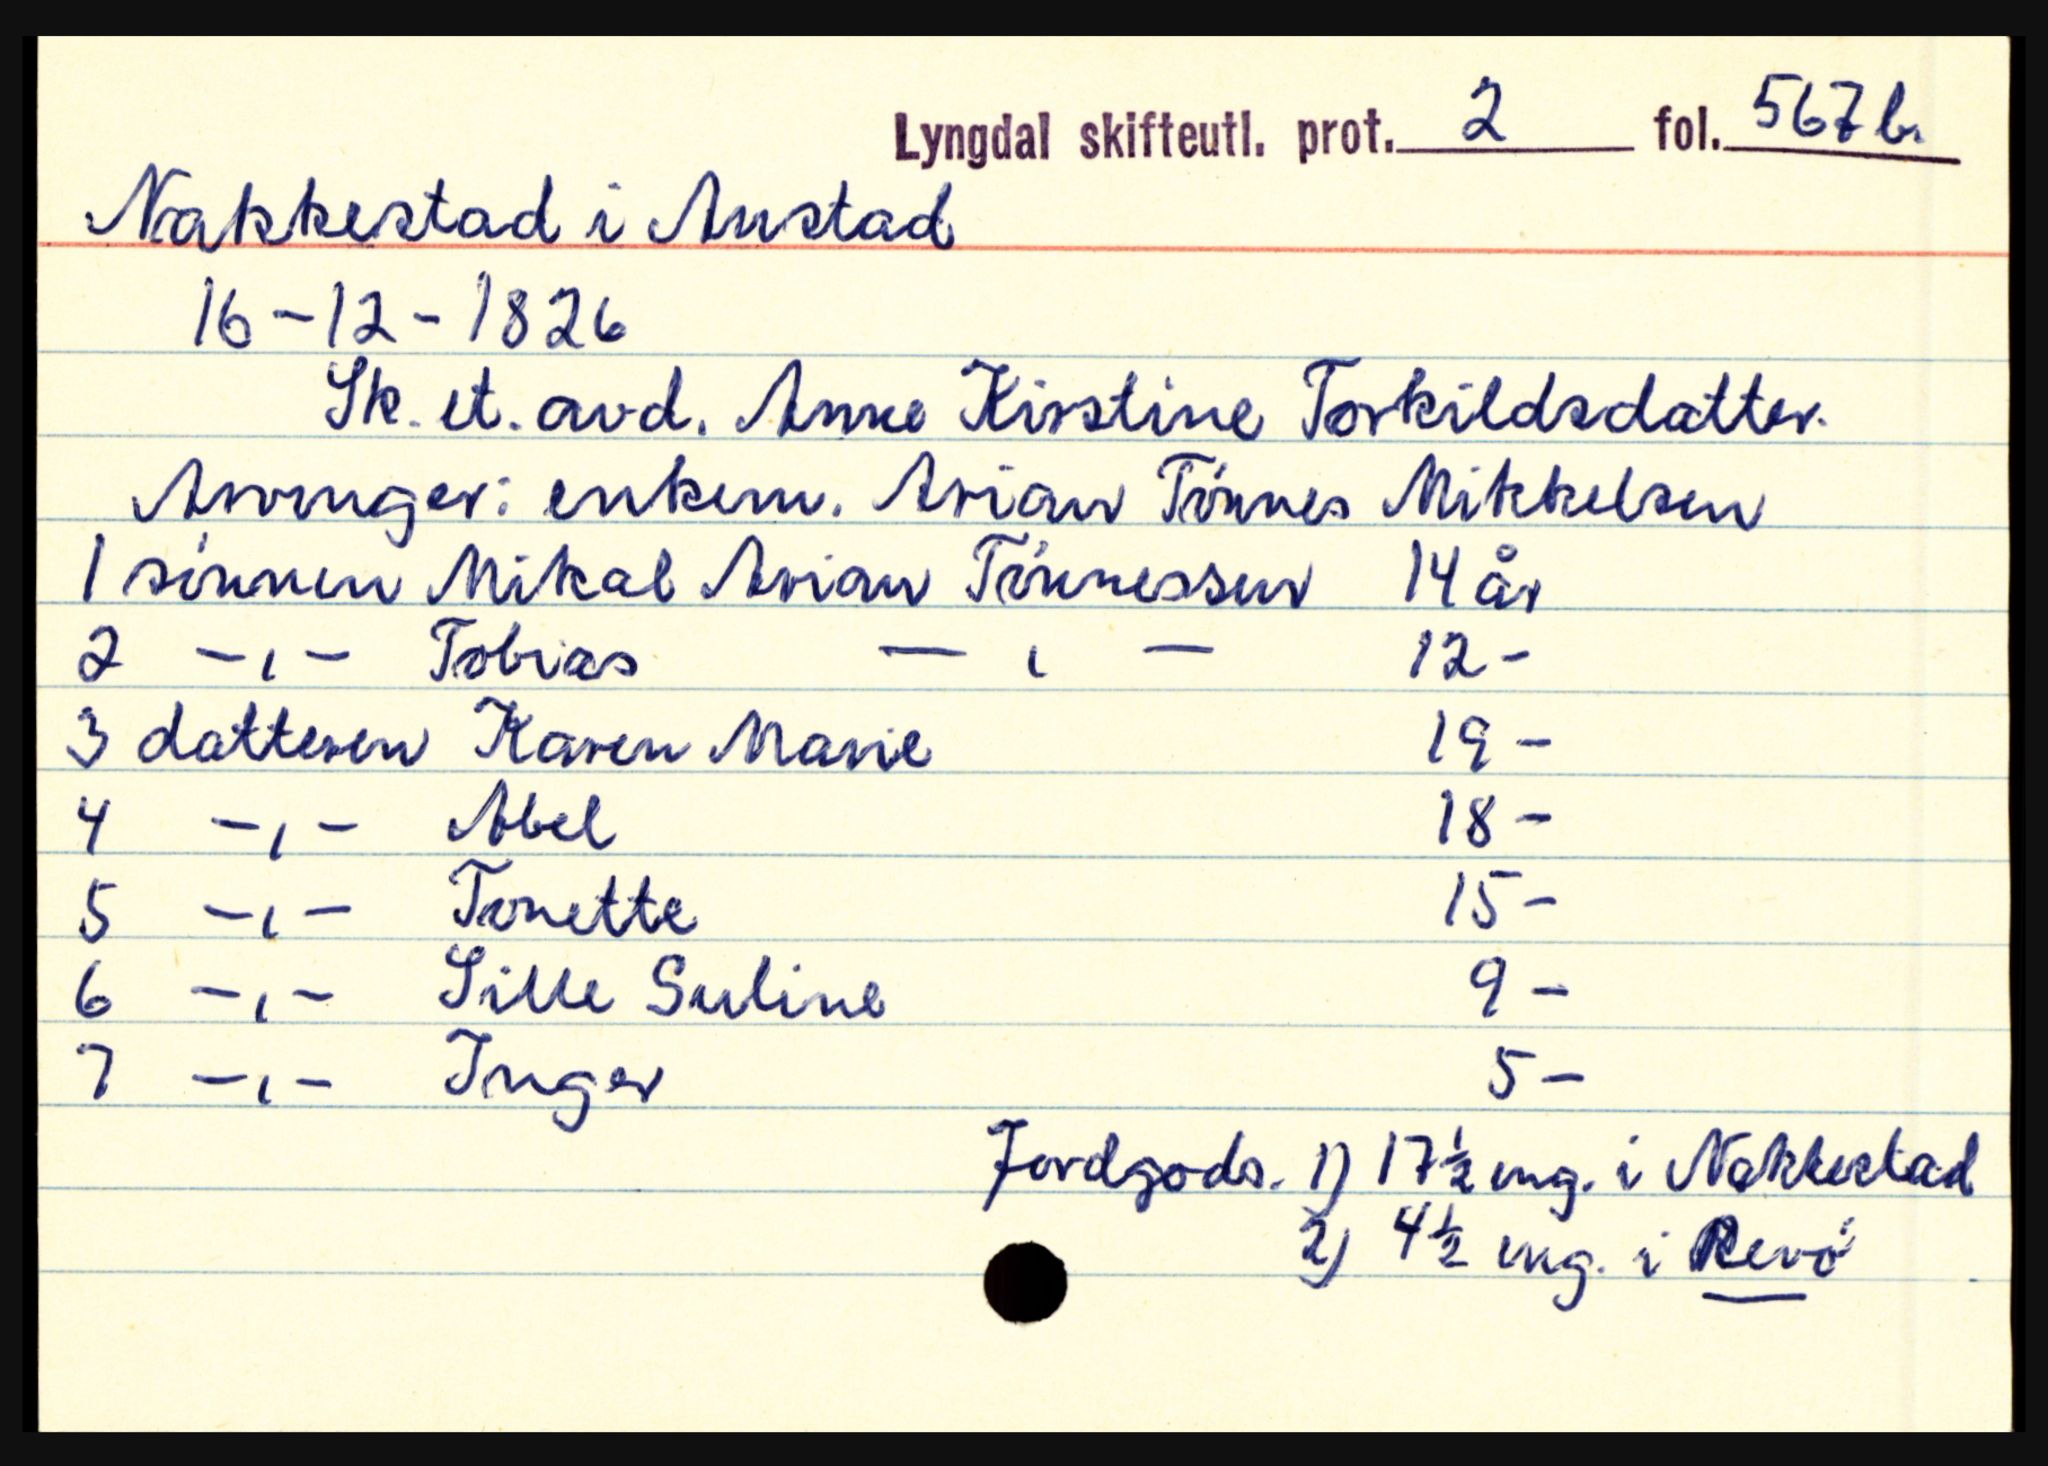 Lyngdal skifteutl. prot. 2 fol. 567 b.
Nakkestad i Austad
16-12-1826
Sk. et. avd. Anne Kirstine Torkildsdatter.
Arvinger: enkem. Arian Tónnes Mikkelsen
1 sónnen Mikal Arian Tónnessen 14 år
2 -,- Tobias - , - 12-
3 datteren Karen Marie 19-
4 -,- Abel 18-
5 -,- Tonette 15-
6 -,- Sille Seline 9-
7 -,- Inger 5-
Jordgods. 1) 17½ mg. i Nakkestad
2) 4½ mg. i Revó